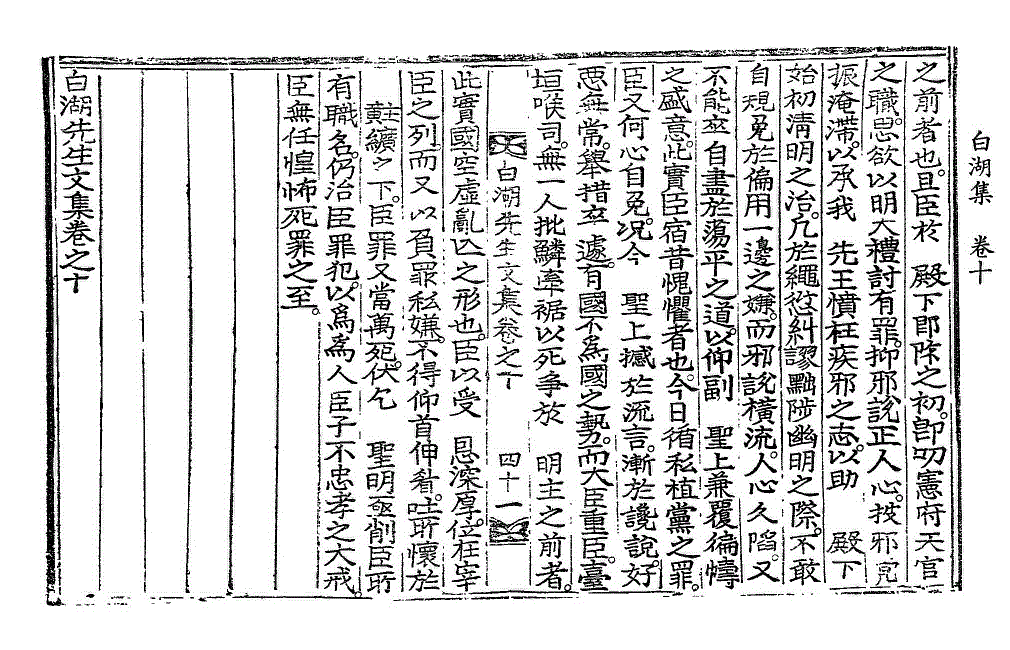 白湖集 卷十
之前者也。且臣於 殿下卽阼之初。卽叨憲府天官
之職。思欲以明大禮討有罪。抑邪說正人心。拔邪冤
振淹滯。以承我 先王憤枉疾邪之志。以助 殿下
始初淸明之治。凡於繩愆糾謬黜陟幽明之際。不敢
自規免於偏用一邊之嫌。而邪說橫流。人心久陷。又
不能卒自盡於蕩平之道。以仰副 聖上兼覆徧幬
之盛意。此實臣宿昔愧懼者也。今日循私植黨之罪。
臣又何心自免。况今 聖上撼於流言。漸於讒說。好
惡無常。舉措卒遽。有國不爲國之勢。而大臣重臣。臺
垣喉司。無一人批鱗牽裾以死爭於 明主之前者。
白湖先生文集卷之十 四十一
此實國空虛亂亾之形也。臣以受 恩深厚。位在宰
臣之列。而又以負罪私嫌。不得仰首伸眉。吐所懷於
黈纊之下。臣罪又當萬死。伏乞 聖明亟削臣所
有職名。仍治臣罪犯。以爲爲人臣子不忠孝之大戒
臣無任惶怖死罪之至。
白湖先生文集卷之十